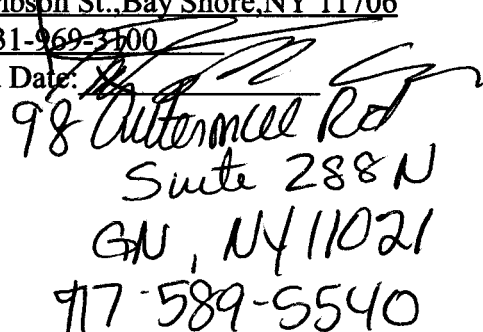 ibson St.,Bay Shore,NY 11706
31-969-3100
Date:
98 Cuttermill Rd
Suite 288N
GN, NY 11021
917-589-5540